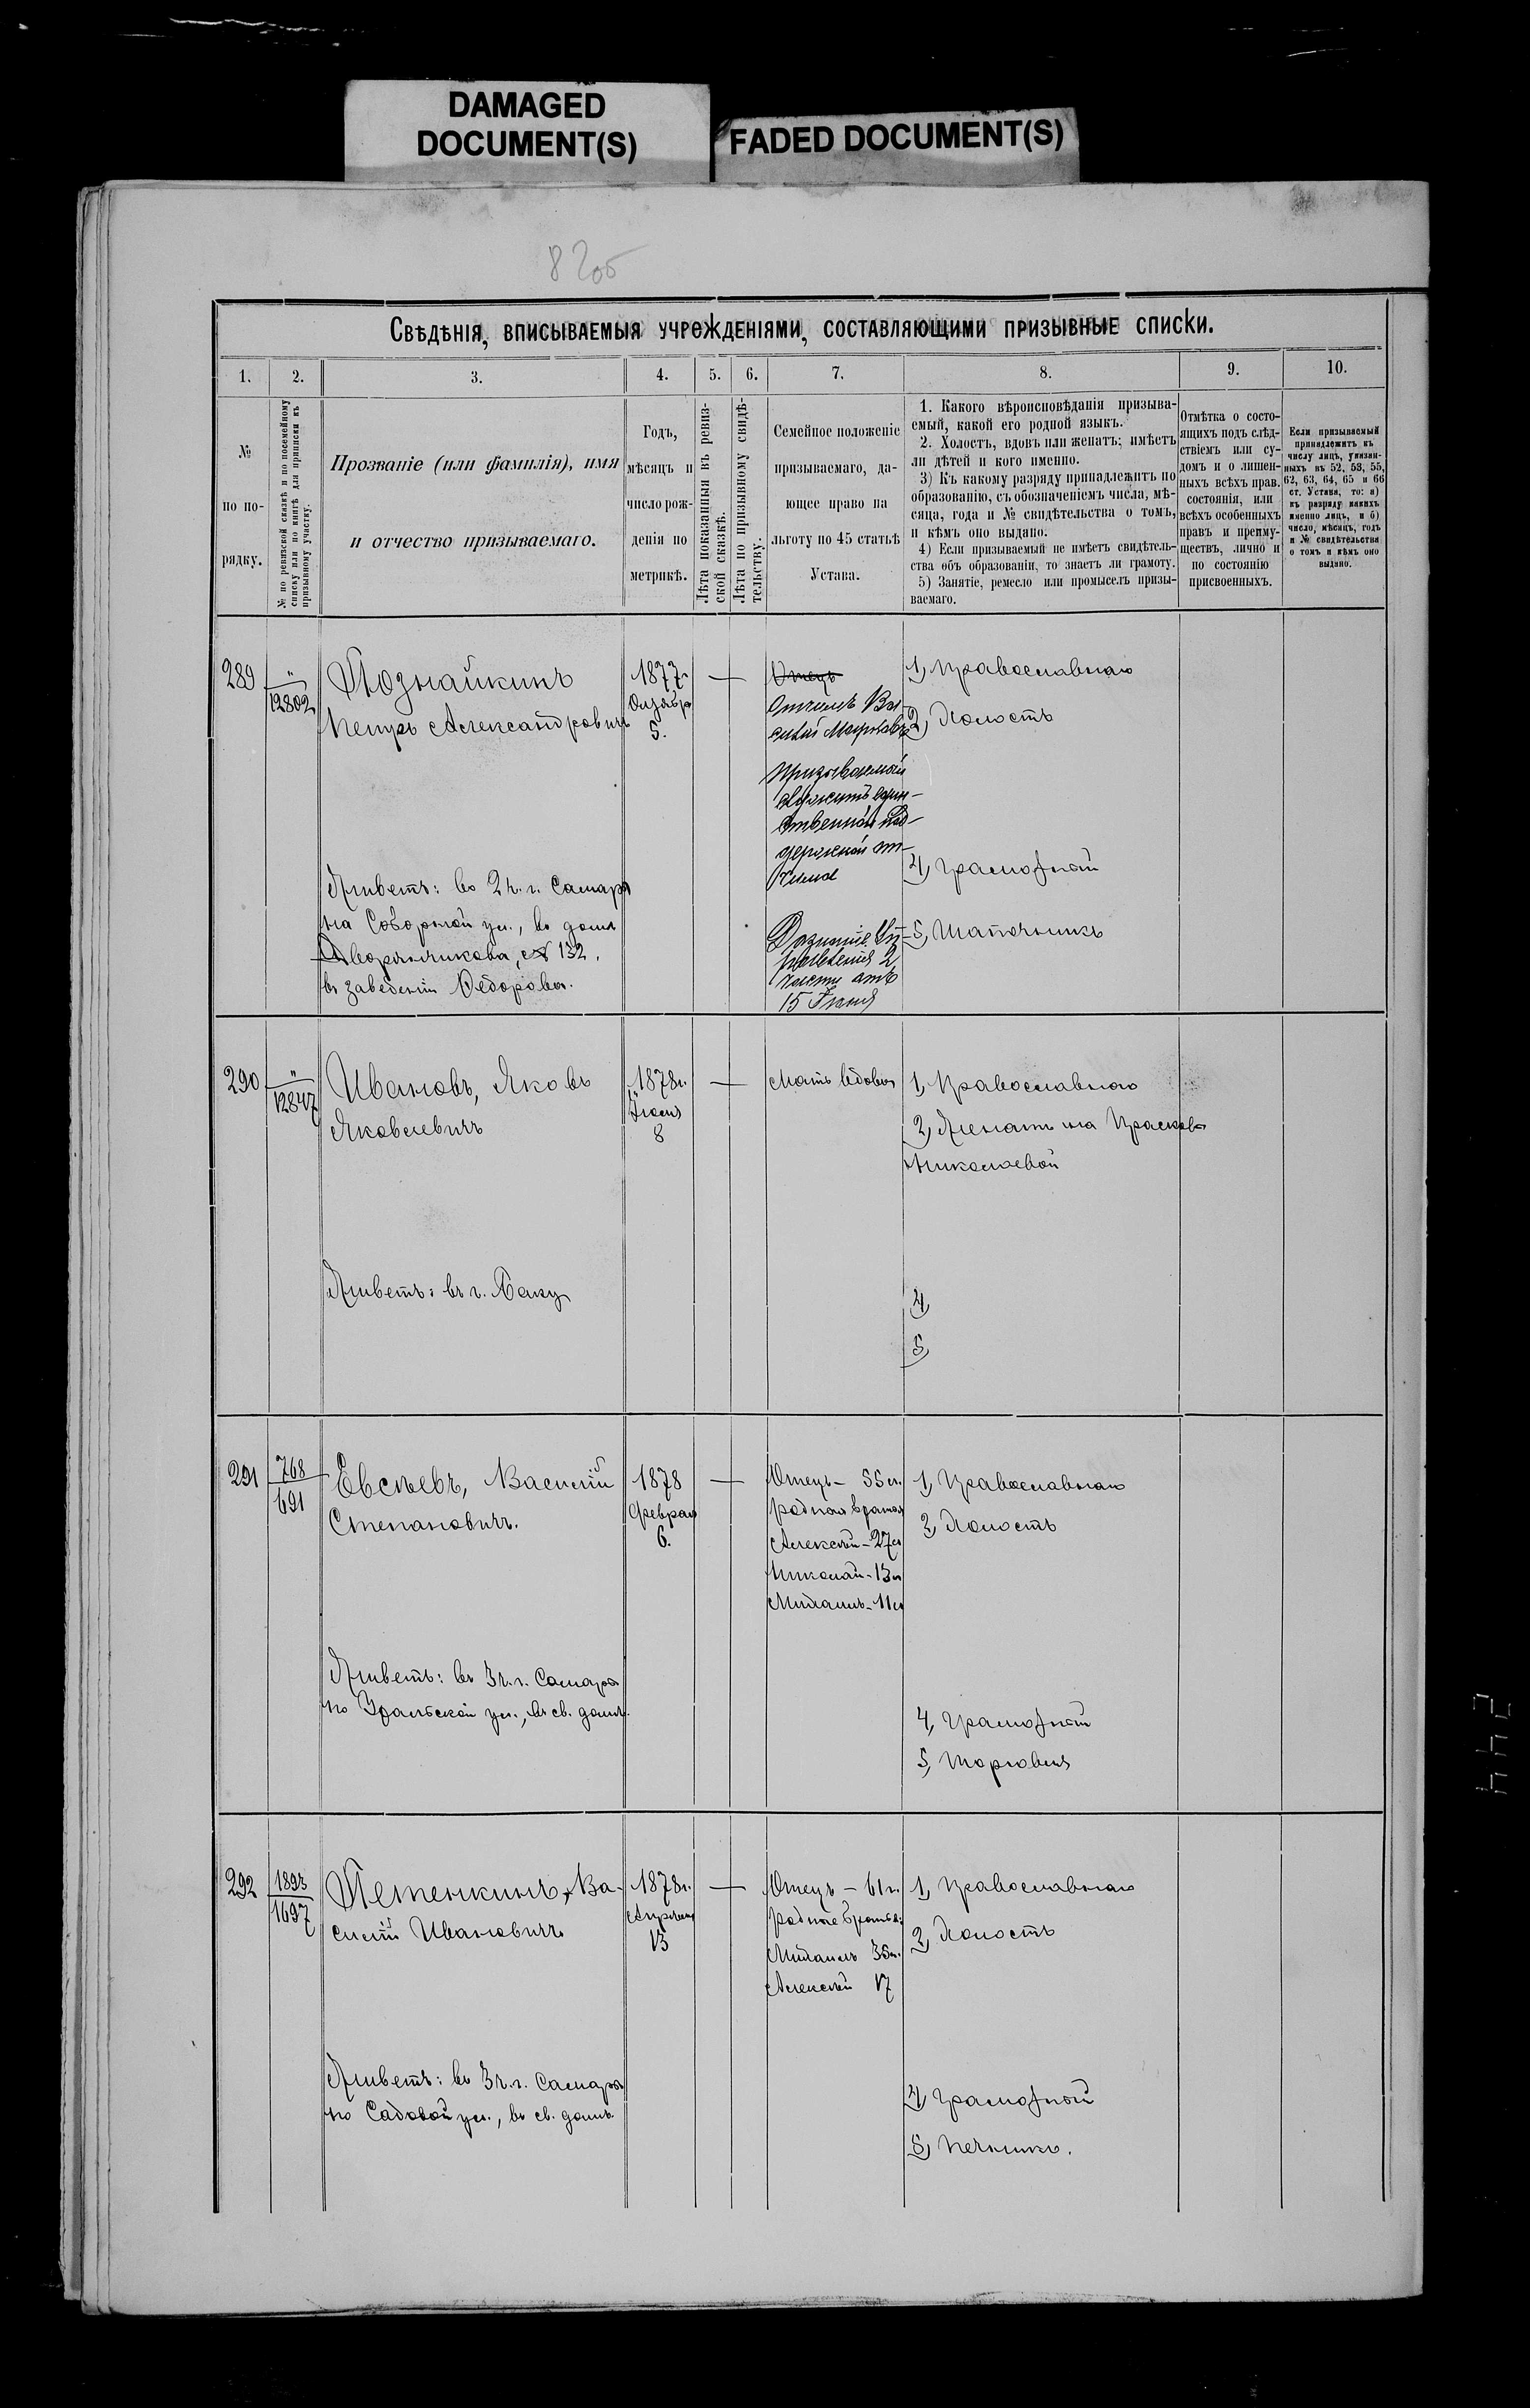 DAMAGED
DOCUMENT(S)
FADED DOCUMENT(S)
Свѣдѣнія, вписываемыя учрежденіями, составляющими призывные списки.
1. 2. 3. 4. 5. 6. 7. 8. 9. 10.
№
по по-
рядку.
№ по ревизской сказкѣ и по посемейному
списку или по книгѣ для приписки къ
призывному участку.
Прозваніе (или фамилія), имя
и отчество призываемаго.
Годъ,
мѣсяцъ и
число рож-
денія по
метрикѣ.
Лѣта показанныя въ ревиз-
ской сказкѣ.
Лѣта по призывному свидѣ-
тельству.
Семейное положеніе
призываемаго, да-
ющее право на
льготу по 45 статьѣ
Устава.
1. Какого вѣроисповѣданія призыва-
емый, какой его родной языкъ.
2. Холостъ, вдовъ или женатъ; имѣетъ
ли дѣтей и кого именно.
3) Къ какому разряду принадлежитъ по
образованію, съ обозначеніемъ числа, мѣ-
сяца, года и № свидѣтельства о томъ,
и кѣмъ оно выдано.
4) Если призываемый не имѣетъ свидѣтель-
ства объ образованіи, то знаетъ ли грамоту.
5) Занятіе, ремесло или промыселъ призы-
ваемаго.
Отмѣтка о состо-
ящихъ подъ слѣд-
ствіемъ или су-
домъ и о лишен-
ныхъ всѣхъ прав.
состоянія, или
всѣхъ особенныхъ
правъ и преиму-
ществъ, лично и
по состоянію
присвоенныхъ.
Если призываемый
принадлежитъ къ
числу лицъ, указан-
ныхъ въ 52, 53, 55,
62, 63, 64, 65 и 66
ст. Устава, то: а)
къ разряду какихъ
именно лицъ, и б)
число, мѣсяцъ, годъ
и № свидѣтельства
о томъ и кѣмъ оно
выдано.
289
"
12802
Познайкинъ
Петръ Александровичъ
Живетъ: въ 2 ч. г. Самары
на Соборной ул., въ домѣ
Дворянчикова, № 132,
въ заведеніи Ѳедорова.
1877
Октября
5.
Отецъ
Отчимъ Ва-
силій
Призываемый
служитъ един-
ственной под-
держкой от-
чима
Дознаніе
2
части отъ
15
1) Православнаго
2) Холостъ
4) Грамотный
5) Шапочникъ
290
"
12847
Ивановъ, Яковъ
Яковлевичъ
Живетъ: въ г. Баку
1878 г.
8
Мать вдова
1) Православнаго
2) Женатъ на Прасковьѣ
Николаевой
4)
5)
291
768
691
Евсѣевъ, Василій
Степановичъ.
Живетъ: въ 3 ч. г. Самары
по Уральской ул., въ св. домѣ.
1878
Февраля
6.
Отецъ – 55 л.
родные братья
Алексѣй – 27 л.
Николай – 13 л.
Михаилъ – 11 л.
1) Православнаго
2) Холостъ
4) Грамотный
5) Торговля
292
1893
1697
Петенкинъ, Ва-
силій Ивановичъ
Живетъ: въ 3 ч. г. Самары
по Садовой ул., въ св. домѣ.
1878 г.
Апрѣля
13
Отецъ – 61 г.
родные братья:
Михаилъ 35 л.
Алексѣй 17
1) Православнаго
2) Холостъ
4) Грамотный
5) Печникъ.
244